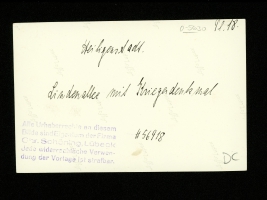 0-5620 91.18
Heiligenstadt.
Lindenallee mit Kriegerdenkmal
#56918
Alle Urheberrechte an diesem
Bilde sind Eigentum der Firma
Cra. Schöning, Lübeck
Jede widerrechtliche Verwen-
dung der Vorlage ist strafbar.
DC